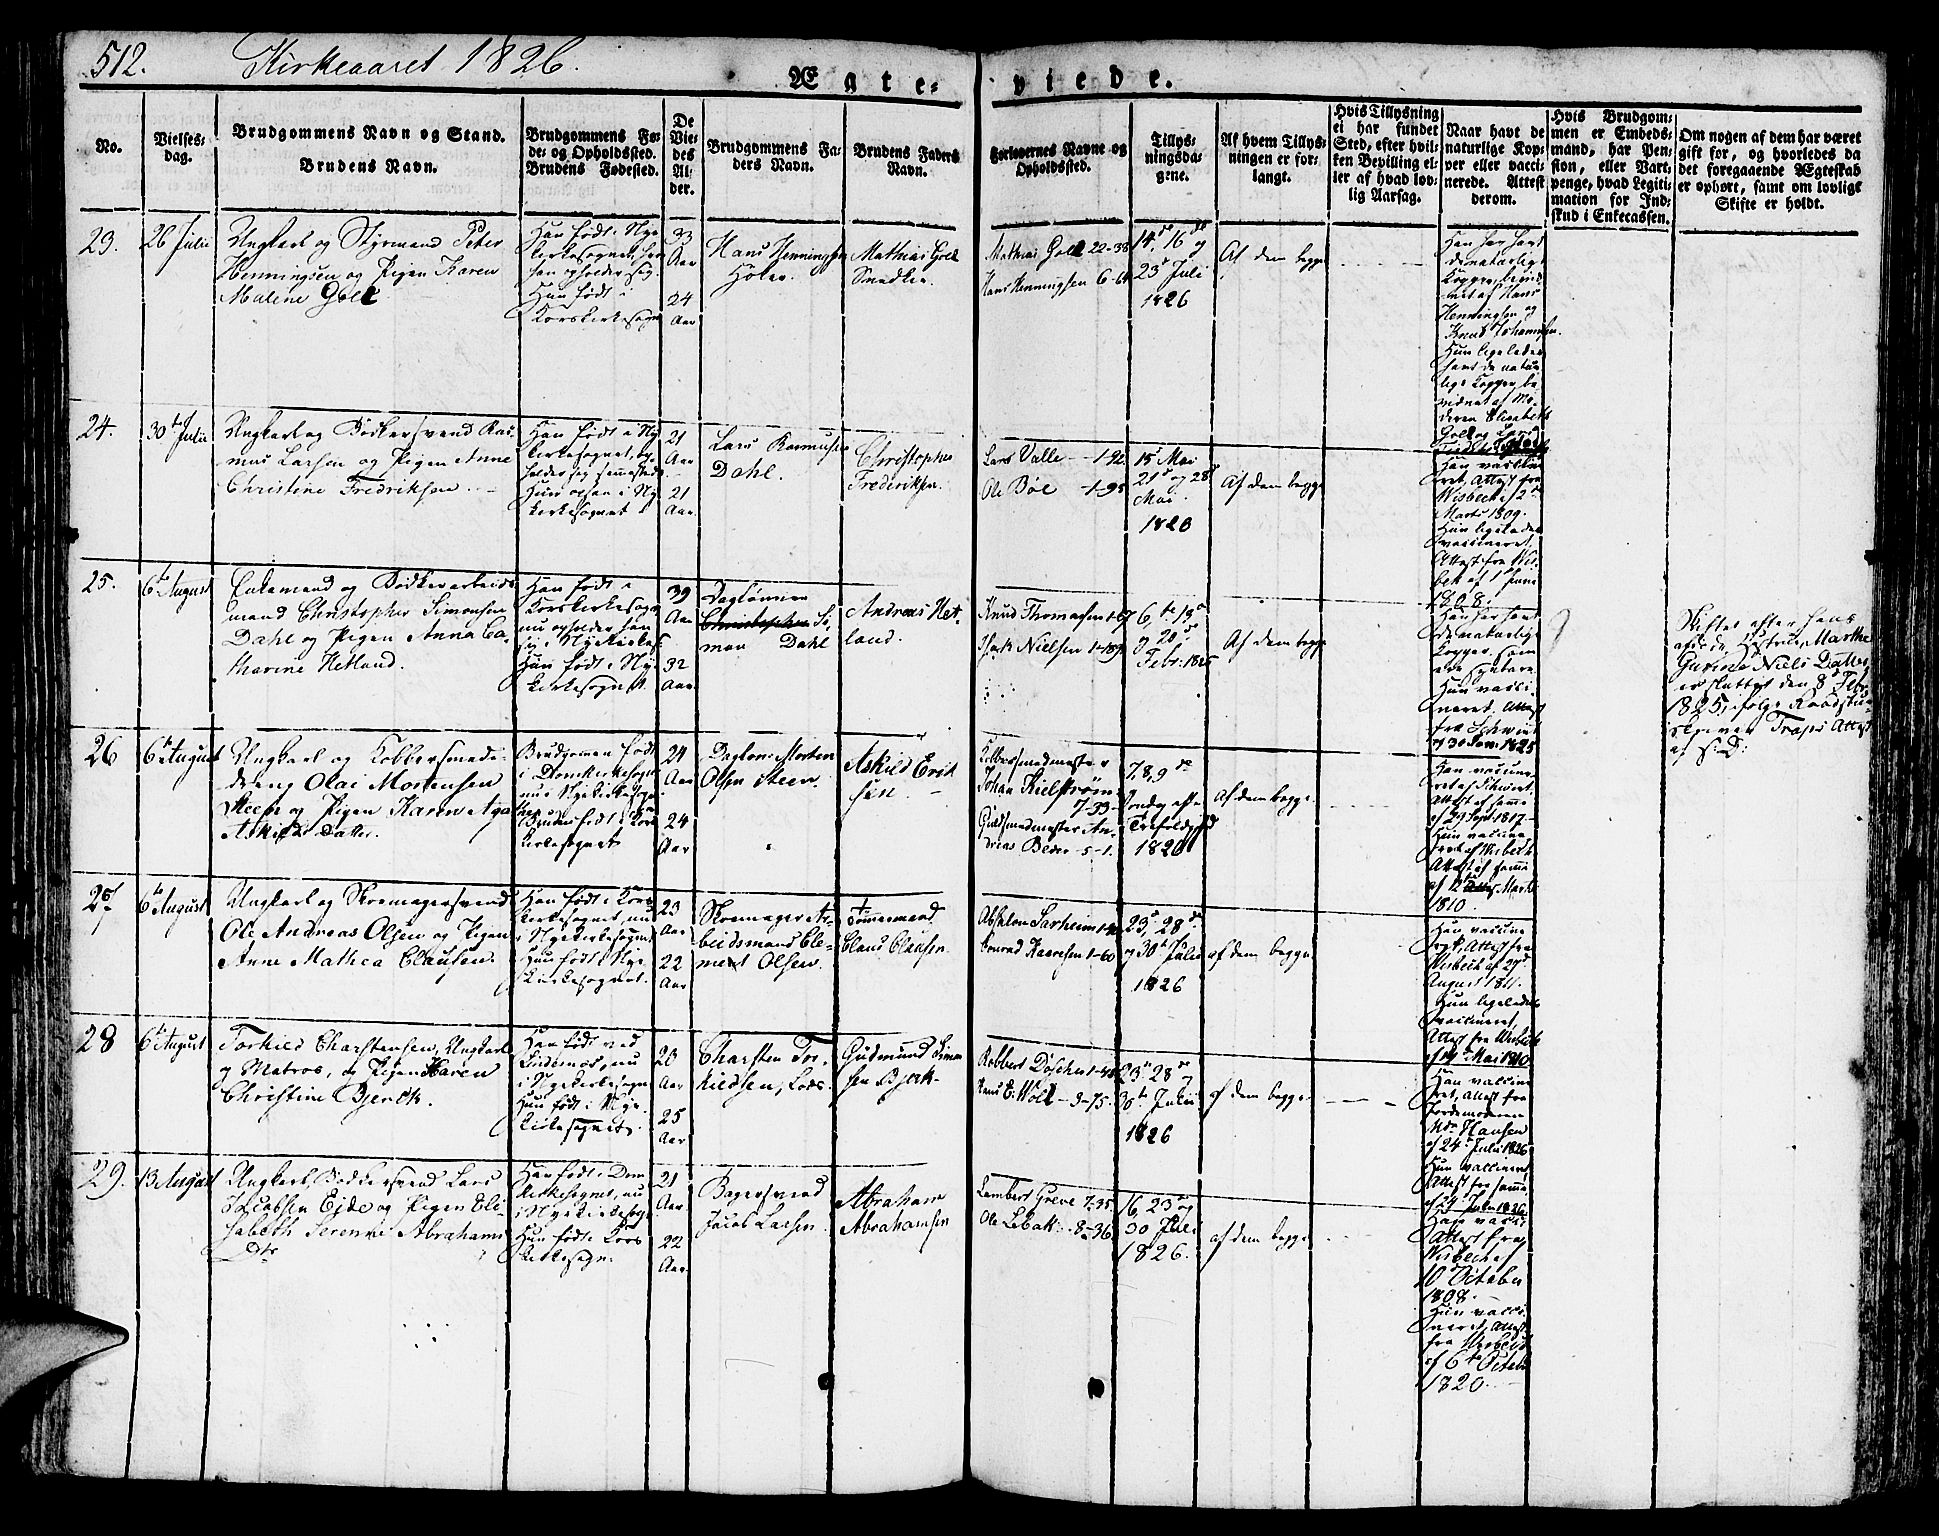 512. Kirkeaaret 1826.
Ægte-viede.
No.
Vielses-
dag.
Brudgommens Navn og Stand.
Brudens Navn.
Brudgommens Fø-
de- og Opholdssted.
Brudens Fødested.
De
Vie-
des
Al-
der.
Brudgommens Fa-
ders Navn.
Brudens Faders
Navn.
Forlovernes Navne og
Opholdssted.
Tillys-
ningsda-
gene.
Af hvem Tillys-
ningen er for-
langt.
Hvis Tillysning
ei har fundet
Sted, efter hvil-
ken Bevilling el-
ler af hvad lov-
lig Aarsag.
Naar havt de
naturlige Kop-
per eller vacci-
nerede. Attest
derom.
Hvis Brudgom-
men er Embeds-
mand, har Pen-
sion, eller Vart-
penge, hvad Legiti-
mation for Ind-
skud i Enkecassen.
Om nogen af dem har været
gift før, og hvorledes da
det foregaaende Ægteskab
er ophørt, samt om lovligt
Skifte er holdt.
23.
26 Julii
Ungkarl og Styrmand Peter
Henningsen og Pigen Karen
Malene Goll
Han født i Nye
Kirkesognet, hvor
han opholder sig.
Hun født i
Korskirkesogn
33
Aar
24
Aar
Hans Henningsen
Mathias Goll
Snedker
Mathias Goll 22-38
Hans Henningsen 6-64
14de, 16de og
23de Juli
1826
Af dem begge
Han har havt
de naturlige
Kopper, bevid-
net af Hans
Henningsen og
Knud Johannesen.
Hun ligeledes
havt de natur-
lige Kopper, be-
vidnet af Mo-
deren Elisabeth
Goll og
24.
30te Julii
Ungkarl og Bødkersvend Ras-
mus Larsen og Pigen Anne
Christine Fredriksen
Han født i Ny
Kirkesognet, op-
holder sig sammesteds
Hun også i Ny
Kirkesognet
21
Aar
21
Aar
Lars Rasmusen
Dahl.
Christopher
Frederiksen.
Lars Valle 1-92
Ole Bøe 1-95
15de Mai
21de og 28de
Mai
1826
Af dem begge
Han vaccine-
ret, Attest fra
Wisbech af 2den
Marts 1809.
Hun ligeledes
vaccineret,
Attest fra Wis-
bech af 1 Juni
1808.
25.
6te August
Enkemand og Bødkerarbeids-
mand Christopher Simonsen
Dahl og Pigen Anna Ca-
tharine Hetland.
Han født i
Korskirkesogn
nu opholder han
sig i Nyekirkes.
Hun født i Nye-
kirkesognet.
39
Aar
32
Aar
Daglønner
Christopher Si-
mon Dahl
Andreas Het-
land.
Knud Thomasen 1-67
Isach Nielsen 1-189
6te, 13de
og 20de
Febr. 1825
Af dem begge
Han har havt
de naturlige
Kopper, som
ede
Hun vacci-
neret. Attest
fra Schwindt
af 30 Jan. 1825
Skiftet efter hans
afdøde Hustrue, Marthe
Gurine Niels Datter,
er sluttet den 8de Febr
1825, ifølge Raadstue-
skriver Traps Attest
af s: D:
26
6te August
Ungkarl og Kobbersmede-
dreng Olai Mortensen
Steen og Pigen Karen Aga-
the Askilds Datter.
Brudgommen født
i Domkirkesogn
nu i Nyekirkesogn
Bruden født i Kors-
kirkesognet
24
Aar
24
Aar
Dagløn: Morten
Olsen Steen.
Askild Erik
sen.
Kobbersmedmester
Johan Kielstrøm
7-33
Guldsmedmester An-
dreas Beder 5-1.
7, 8, 9de
Søndag efter
Trefoldighed
1826
Af dem begge.
Han vaccine-
ret af Schwindt.
Attest af samme
af 24 Sept 1817
Hun vaccine-
ret af Wisbech.
Attest af samme
af 12te Marts
1810.
27
6te August
Ungkarl og Skomagersvend
Ole Andreas Olsen og Pigen
Anne Mathea Clausen.
Han født i Kors-
kirkesognet, nu
i Nyekirkesognet,
Hun født i Nye-
kirkesognet.
23
Aar
22
Aar
Skomager Ar-
beidsmand Cle-
ment Olsen.
Tømmermand
Claus Clausen.
Absalon Sarheim
Konrad Kaaresen 1-60
23de, 28de
og 30te Julii
1826
af dem begge
Han vaccine-
ret, Attest fra
Wisbech af 27de
August 1811.
Hun ligeledes
vaccineret,
Attest fra Wisbech
af 19de Mai 1810
28
6te August
Torkild Charstensen, Ungkarl
og Matros, og Pigen Karen
Christine Bjerck.
Han født ved
Lindenæs, nu
i Nyekirkesogn
Hun født i Nye-
kirkesognet.
20
Aar
25
Aar
Charsten Tor-
kildsen, Lods.
Gudmund Simon-
sen Bjerk.
Robbert Døscher 1-48
Knut E. Woll 9-75.
23de 28de og
30te Julii
1826
af dem begge
Han vaccine-
ret, Attest fra
Jordemoderen
Md. Hansen
af 24de Julii 1826
Hun vaccineret
Attest fra samme
af 24 Julii 1826
29.
13 August
Ungkarl, Bødkersvend Lars
Jacobsen Eide og Pigen Eli-
sabeth Serenne Abrahams
Dtr.
Han født i Dom-
kirkesognet, nu
i Nyekirkesogn
Hun født i Kors-
kirkesogn.
21
Aar
22
Aar
Bagersvend
Jacob Larsen.
Abraham
Abrahamsen
Lambert Greve 7-35
Ole Lebak: 8-36
16, 23de og
30 Juli
1826.
af dem begge
Han vacci:
Attest fra
Wisbech af
10de October
1808.
Hun vacci-
neret, Attest
fra Wisbech
af 6te October
1820.